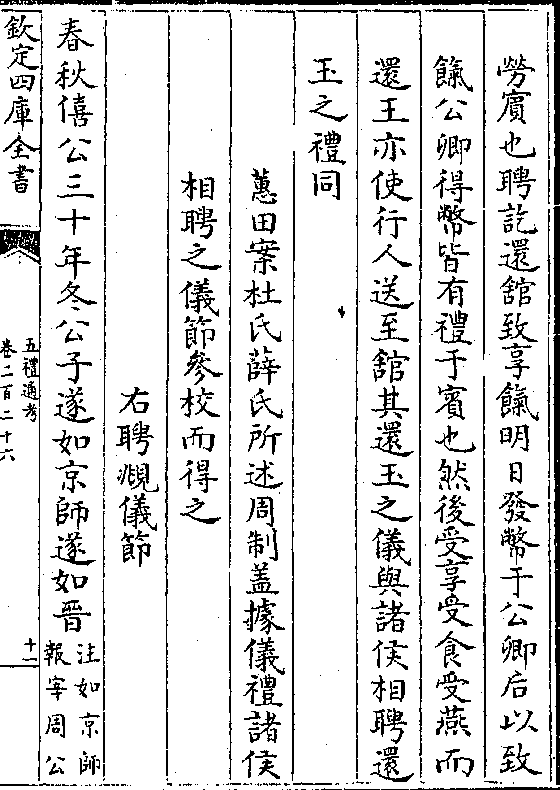 勞賔也聘訖還舘致享餼明日發幣于公卿后以致
餼公卿得幣皆有禮于賔也然後受享受食受燕而
還王亦使行人送至舘其還玉之儀與諸侯相聘還
玉之禮同
蕙田案杜氏薛氏所述周制蓋據儀禮諸侯
相聘之儀節參校而得之
右聘覜儀節
春秋僖公三十年冬公子遂如京師遂如晉
注如京師
報宰周公
欽定四庫全書
五禮通考
卷二百二十六
十一